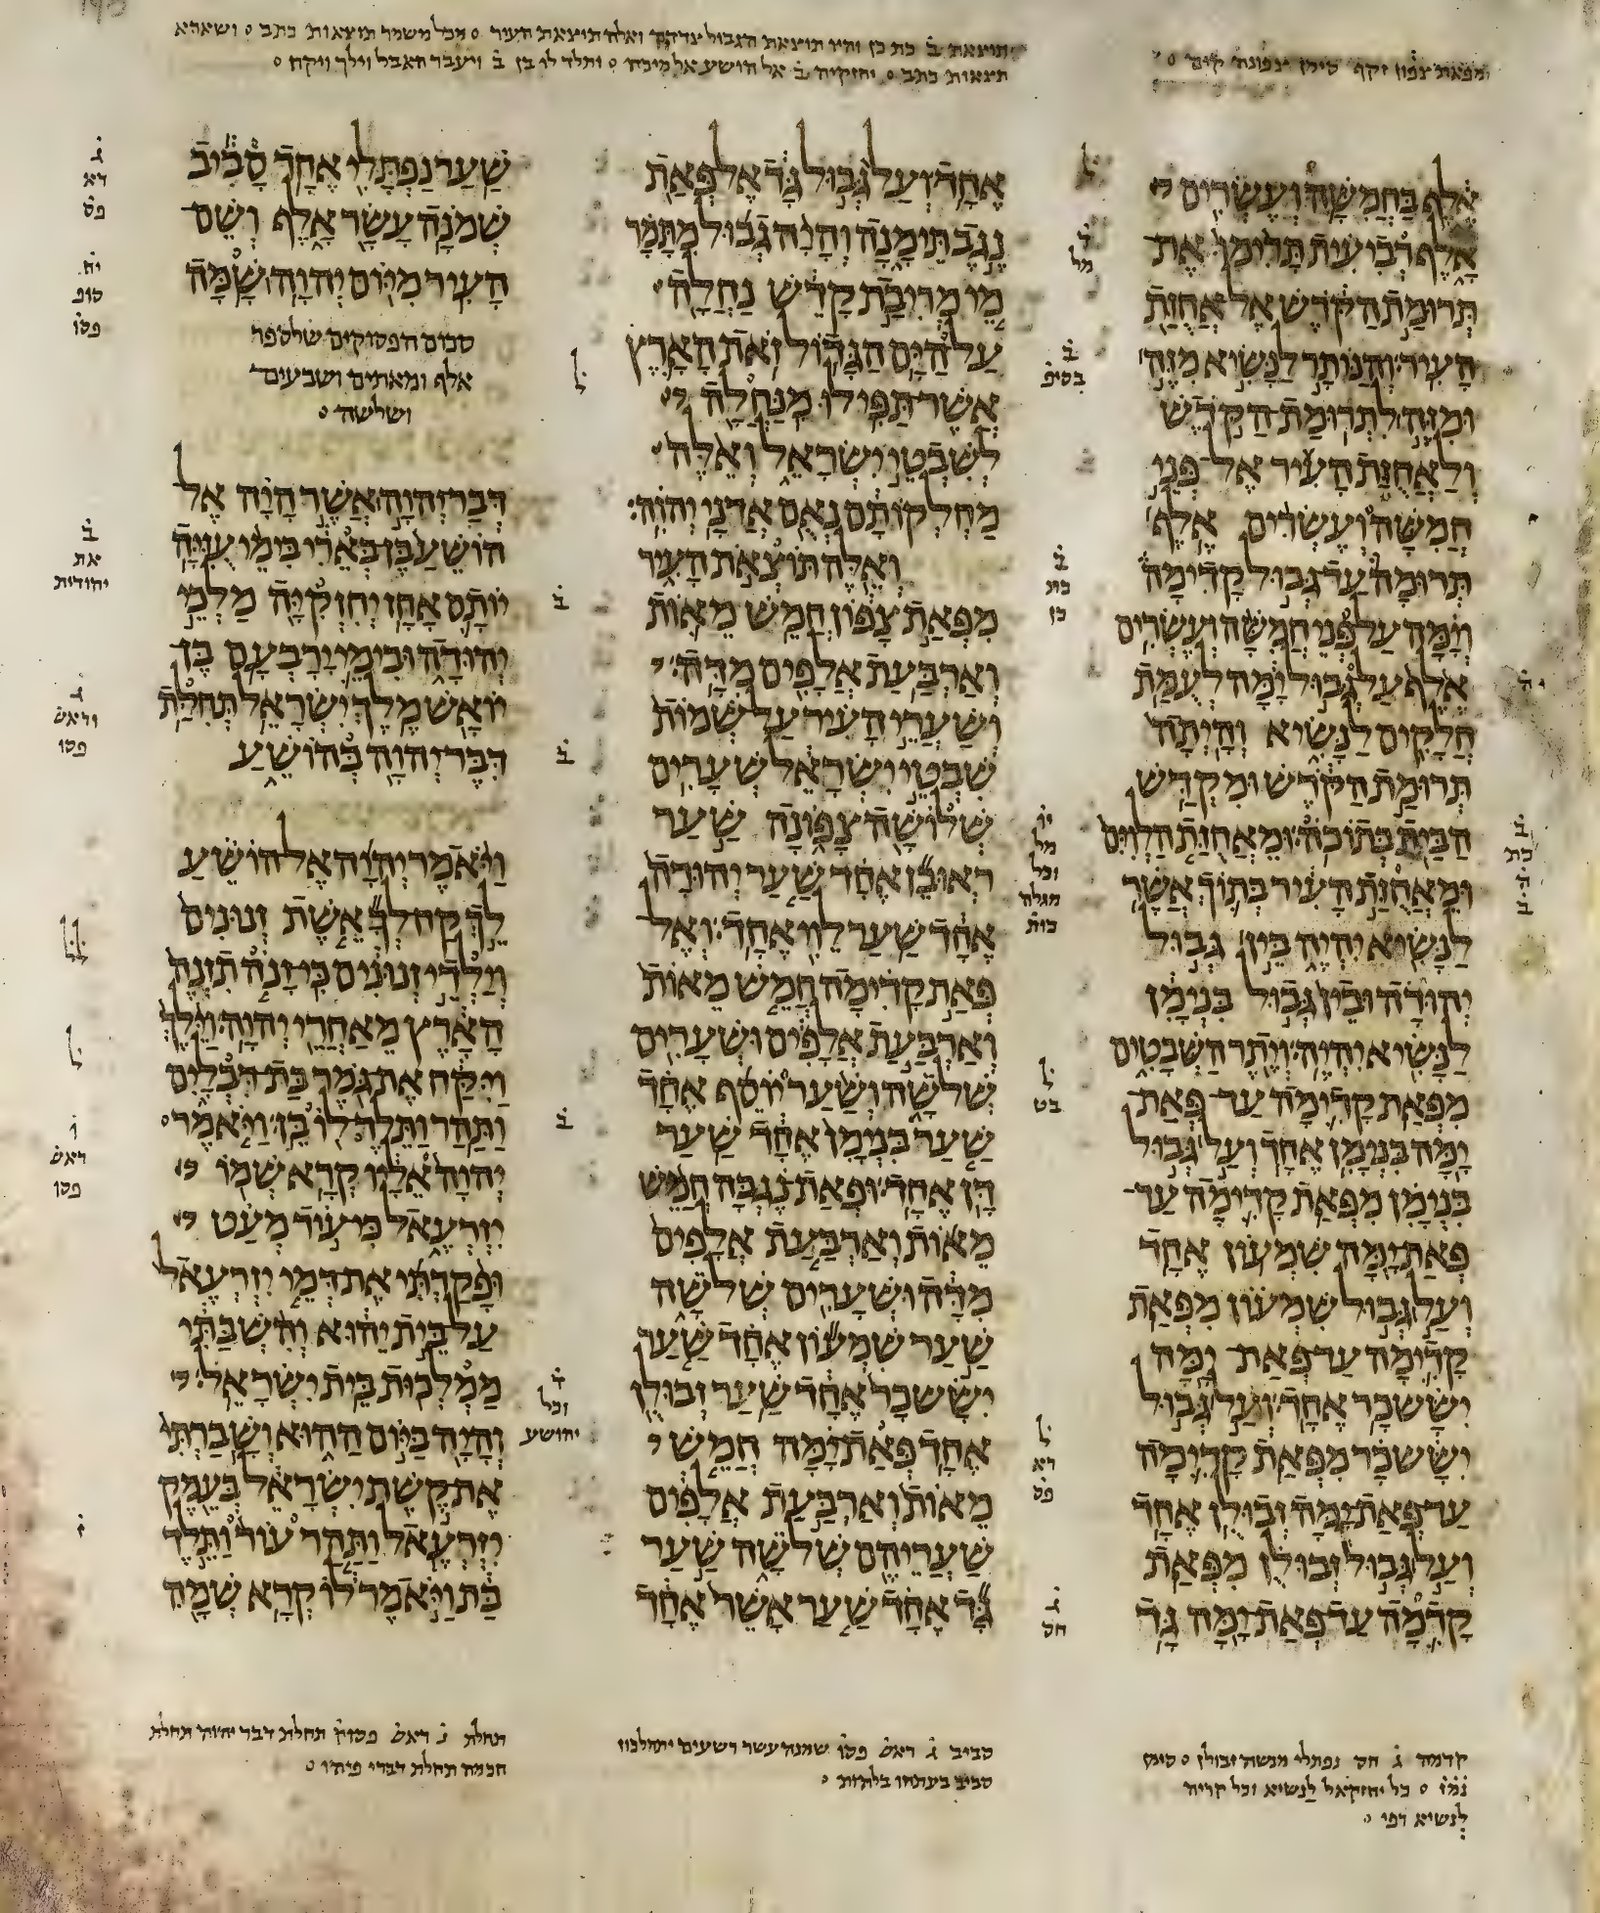 אלף בחמשה ועשרים
אלף רביעית תלימן את
תרומת הקדש אל אחזת
העיר והנותר לנשיא מזה
ומזה לתרומת הקדש
ולאחזת העיר אל פני
חמשה ועשרים אלף
תרומה עד גבול קדימה
וימה על פני חמשה ועשרים
אלף על גבול ימה לעמת
חלקים לנשיא והיתה
תרומת הקדש ומקדש
הבית בתוכה ומאחזת הלוים
ומאחזת העיר בתוך אשר
לנשיא יהיה בין גבול
יהודה ובין גבול בנימן
לנשיא יהיה ויתר השבטים
מפאת קדימה עד פאת
ימה בנימן אחד ועל גבול
בנימן מפאת קדימה עד
פאת ימה שמעון אחד
ועל גבול שמעון מפאת
קדימה עד פאת ימה
יששכר אחד ועל גבול
יששכר מפאת קדימה
עד פאת ימה זבולן אחד
ועל גבול זבולן מפאת
קדמה עד פאת ימה גד
אחד ועל גבול גד אל פאת
נגב תימנה והיה גבול מתמר
מי מריבת קדש נחלה
על הים הגדול זאת הארץ
אשר תפילו מנחלה
לשבטי ישראל ואלה
מחלקותם נאם אדני יהוה
ואלה תוצאת העיר
מפאת צפון חמש מאות
וארבעת אלפים מדה
ושערי העיר על שמות
שבטי ישראל שערים
שלושה צפונה שער
ראובן אחד שער יהודה
אחד שער לוי אחד ואל
פאת קדימה חמש מאות
וארבעת אלפים ושערים
שלשה ושער יוסף אחד
שער בנימן אחד שער
דן אחד ופאת נגבה חמש
מאות וארבעת אלפים
מדה ושערים שלשה
שער שמעון אחד שער
יששכר אחד שער זבולן
אחד פאת ימה חמש
מאות וארבעת אלפים
שעריהם שלשה שער
גד אחד שער אשר אחד
שער נפתלי אחד סביב
שמנה עשר אלף ושם
העיר מיום יהוה שמה
סכום הפסוקים שלספר
אלף ומאתים ושבעים
ושלשה
דבר יהוה אשר היה אל
הושע בן בארי בימי עזיה
יותם אחז יחזקיה מלכי
יהודה ובימי ירבעם בן
יואש מלך ישראל תחלת
דבר יהוה בהושע
ויאמר יהוה אל הושע
לך קח לך אשת זנונים
וילדי זנונים כי זנה תזנה
הארץ מאחרי יהוה וילך
ויקח את גמר בת דבלים
ותהר ותלד לו בן ויאמר
יהוה אליו קרא שמו
יזרעאל כי עוד מעט
ופקדתי את דמי יזרעאל
על בית יהוא והשבתי
ממלכות בית ישראל
והיה ביום ההוא ושברתי
את קשת ישראל בעמק
יזרעאל ותהר עוד ותלד
בת ויאמר לו קרא שמה
קדמה ג חס נפתלי מנשה זבולן סימן
לנשיא דפי
סביב ג ראש פסו שמנה עשר רשעים יתהלכון
תחלת ג ראש פסוק תחלת דבר יהוה תחלת
חכמה תחלת דברי פיהו